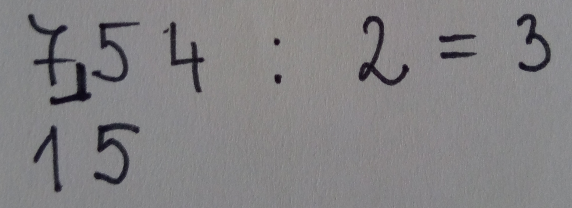 754 : 2 = 3
15